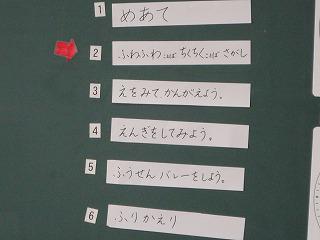 1 めあて
2 ふわふわことば ちくちくことば さがし
3 えをみて、かんがえよう。
4 えんぎをしてみよう。
5 ふうせんバレーをしよう。
6 ふりかえり